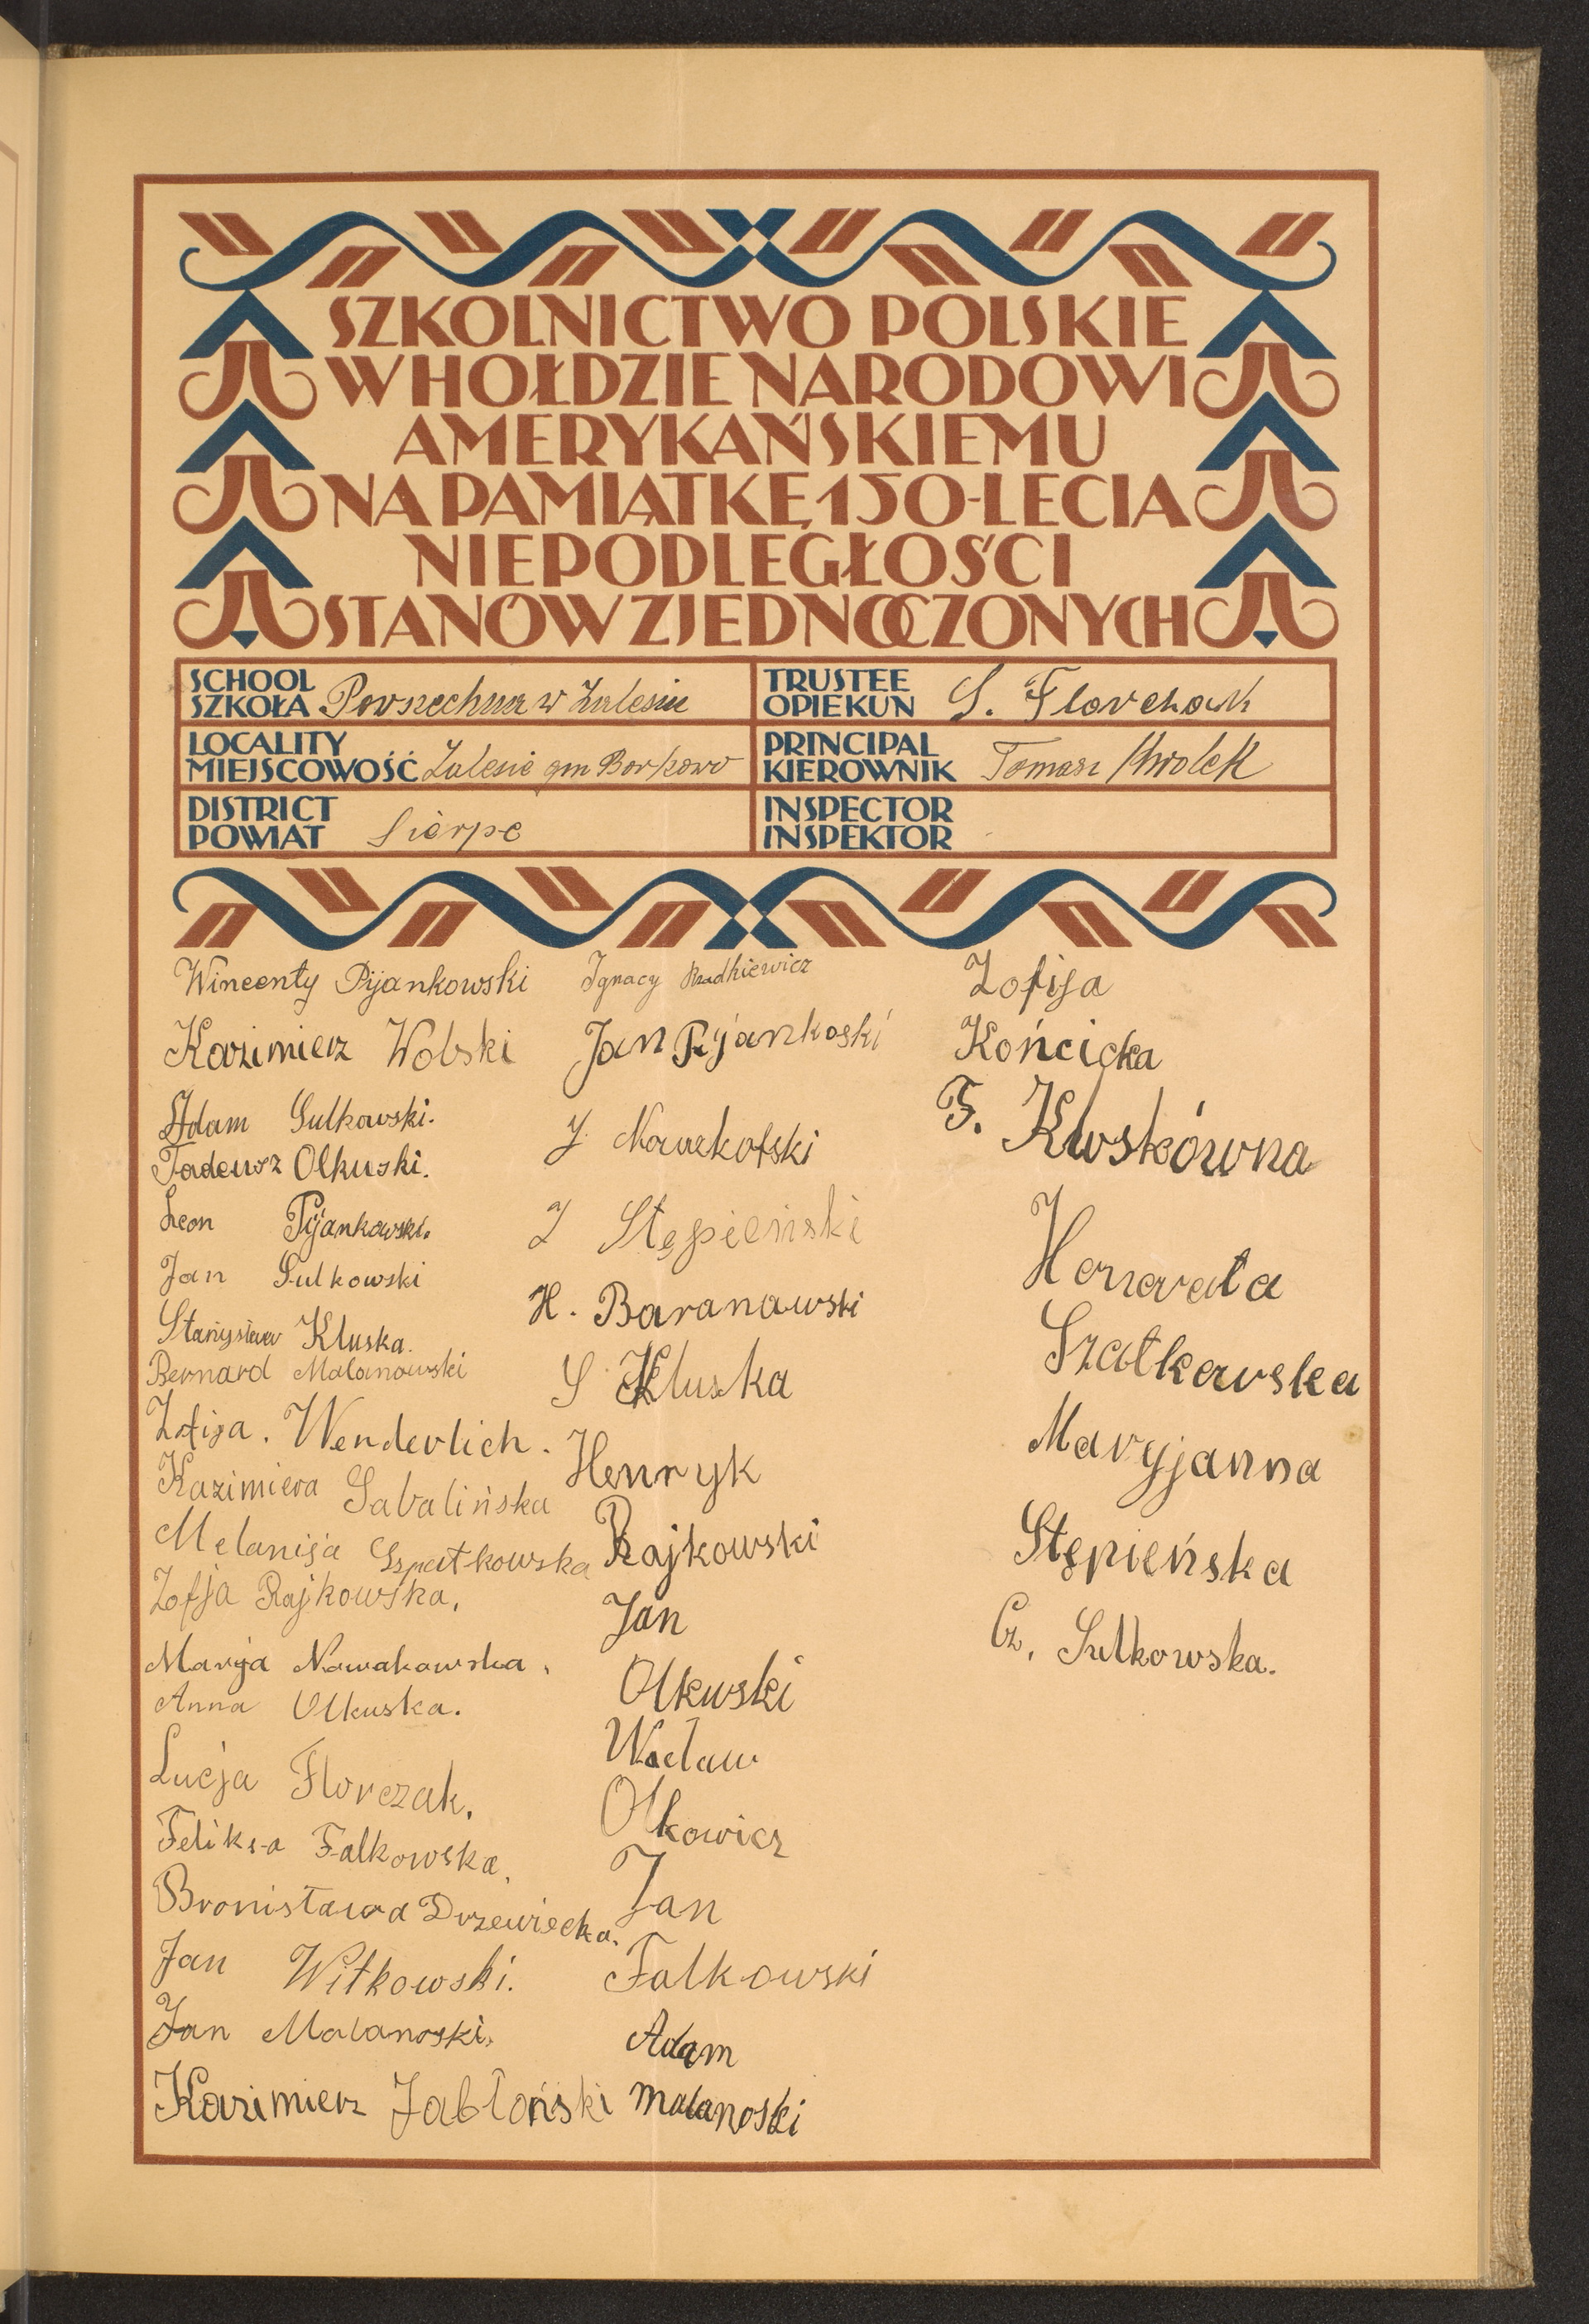 SZKOLNICTWO POLSKIE
W HOŁDZIE NARODOWI
AMERYKAŃSKIEMU
NA PAMIĄTKĘ 150-LECIA
NIEPODLEGŁOŚCI
STANÓW ZJEDNOCZONYCH
SCHOOL
SZKOŁA Powszechna w Zalesiu
TRUSTEE
OPIEKUN S. Florchak
LOCALITY
MIEJSCOWOŚĆ Zalesie gm Borkowo
PRINCIPAL
KIEROWNIK Tomasz Kwolek
DISTRICT
POWIAT Sierpc
INSPECTOR
INSPEKTOR
Wincenty Pijankowski
Kazimierz Wolski
Adam Sulkowski.
Tadeusz Olkuski.
Leon Pijankowski.
Jan Sulkowski
Stanysław Kluska.
Bernard Malanowski
Zofija. Wenderlich.
Kazimiera Sabalińska
Melanija Szpatkowska
Zofja Rajkowska,
Maryja Nowakowska,
Anna Olkuska.
Lucja Florczak.
Feliksa Falkowska,
Bronisława Drzewiecka.
Jan Witkowski.
Jan Malanoski.
Kazimierz Jabłoński
Ignacy Radkiewicz
Jan Pijankoski
J. Nowakofski
Z Stępieński
H. Baranawski
S Kluska
Henryk
Rajkowski
Jan
Olkuski
Wacław
Olkowicz
Jan
Falkowski
Adam
malanoski
Zofija
Kończicka
F. Kluskówna
Honorata
Szatkowska
Maryjanna
Stępieńska
Cz. Sulkowska.